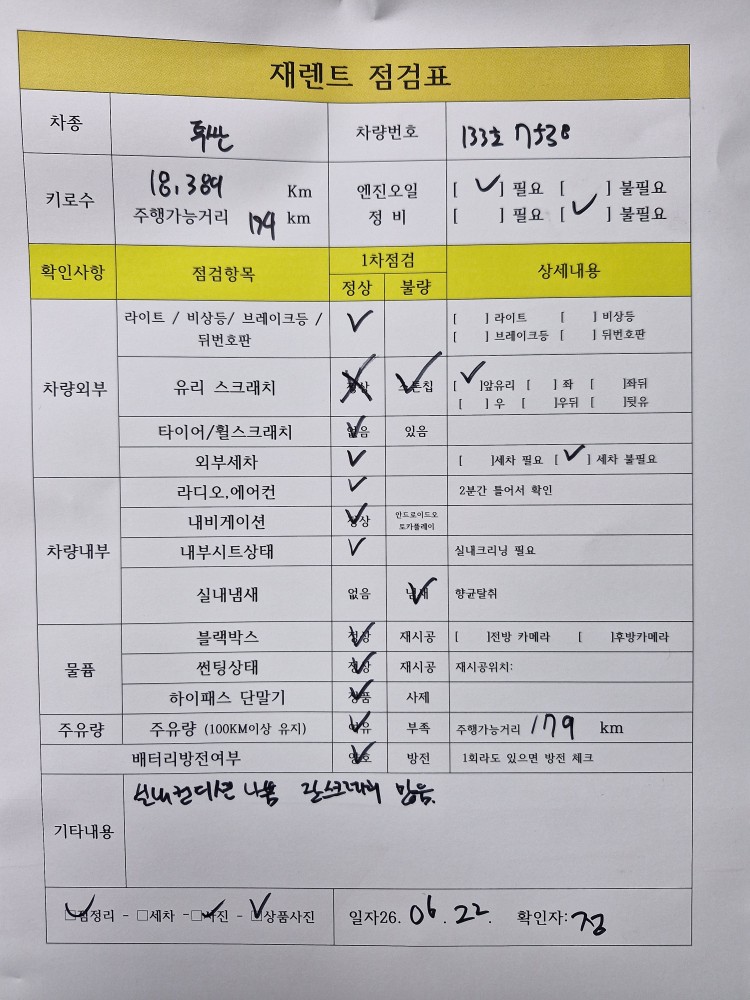 재렌트 점검표
차종 투싼 차량번호 133호 7538
키로수 18,389 Km 엔진오일 [ ✓ ] 필요 [ ] 불필요
주행가능거리 179 km 정비 [ ] 필요 [ ✓ ] 불필요
확인사항 점검항목 1차점검 상세내용
정상 불량
차량외부 라이트 / 비상등/ 브레이크등 / 뒤번호판 ✓ [ ] 라이트 [ ] 비상등
[ ] 브레이크등 [ ] 뒤번호판
유리 스크래치 정상 스톤칩 ✓ [ ✓ ]앞유리 [ ] 좌 [ ]좌뒤
[ ] 우 [ ]우뒤 [ ]뒷유
타이어/휠스크래치 없음 ✓ 있음
외부세차 ✓ [ ]세차 필요 [ ✓ ] 세차 불필요
차량내부 라디오,에어컨 ✓ 2분간 틀어서 확인
내비게이션 정상 ✓ 안드로이드오토카플레이
내부시트상태 ✓ 실내크리닝 필요
실내냄새 없음 냄새 ✓ 향균탈취
물품 블랙박스 정상 ✓ 재시공 [ ]전방 카메라 [ ]후방카메라
썬팅상태 정상 ✓ 재시공 재시공위치:
하이패스 단말기 정품 ✓ 사제
주유량 주유량 (100KM이상 유지) 여유 ✓ 부족 주행가능거리 179 km
배터리방전여부 양호 ✓ 방전 1회라도 있으면 방전 체크
기타내용 실내컨디션 나쁨 잔스크래치 많음.
□점정리 - □세차 - □사진 - □상품사진 일자26. 06 . 22. 확인자: 정